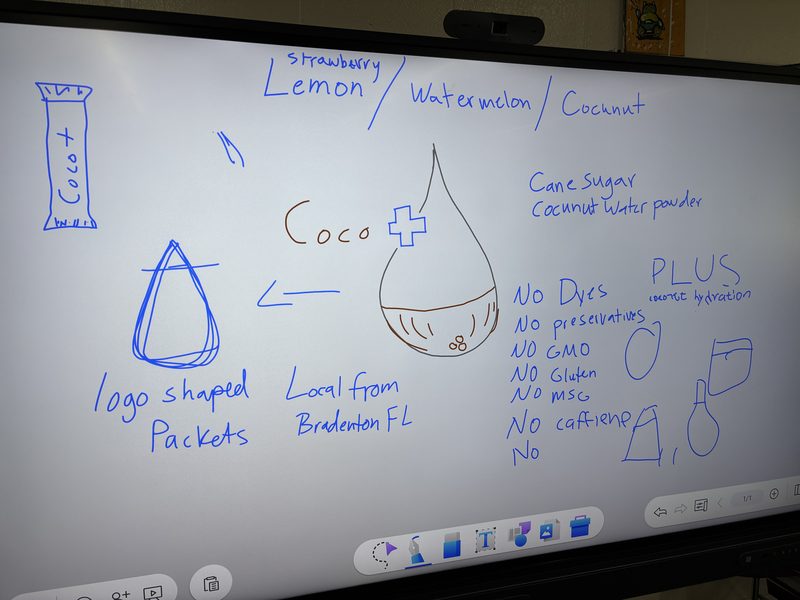 strawberry
Lemon / Watermelon / Cocunut
Coco +
Coco
Cane sugar
Cocunut Water powder
PLUS
coconut hydration
No Dyes
No preservatives
NO GMO
NO Gluten
No MSG
No caffiene
No
logo shaped
Packets
Local from
Bradenton FL
T
1/1